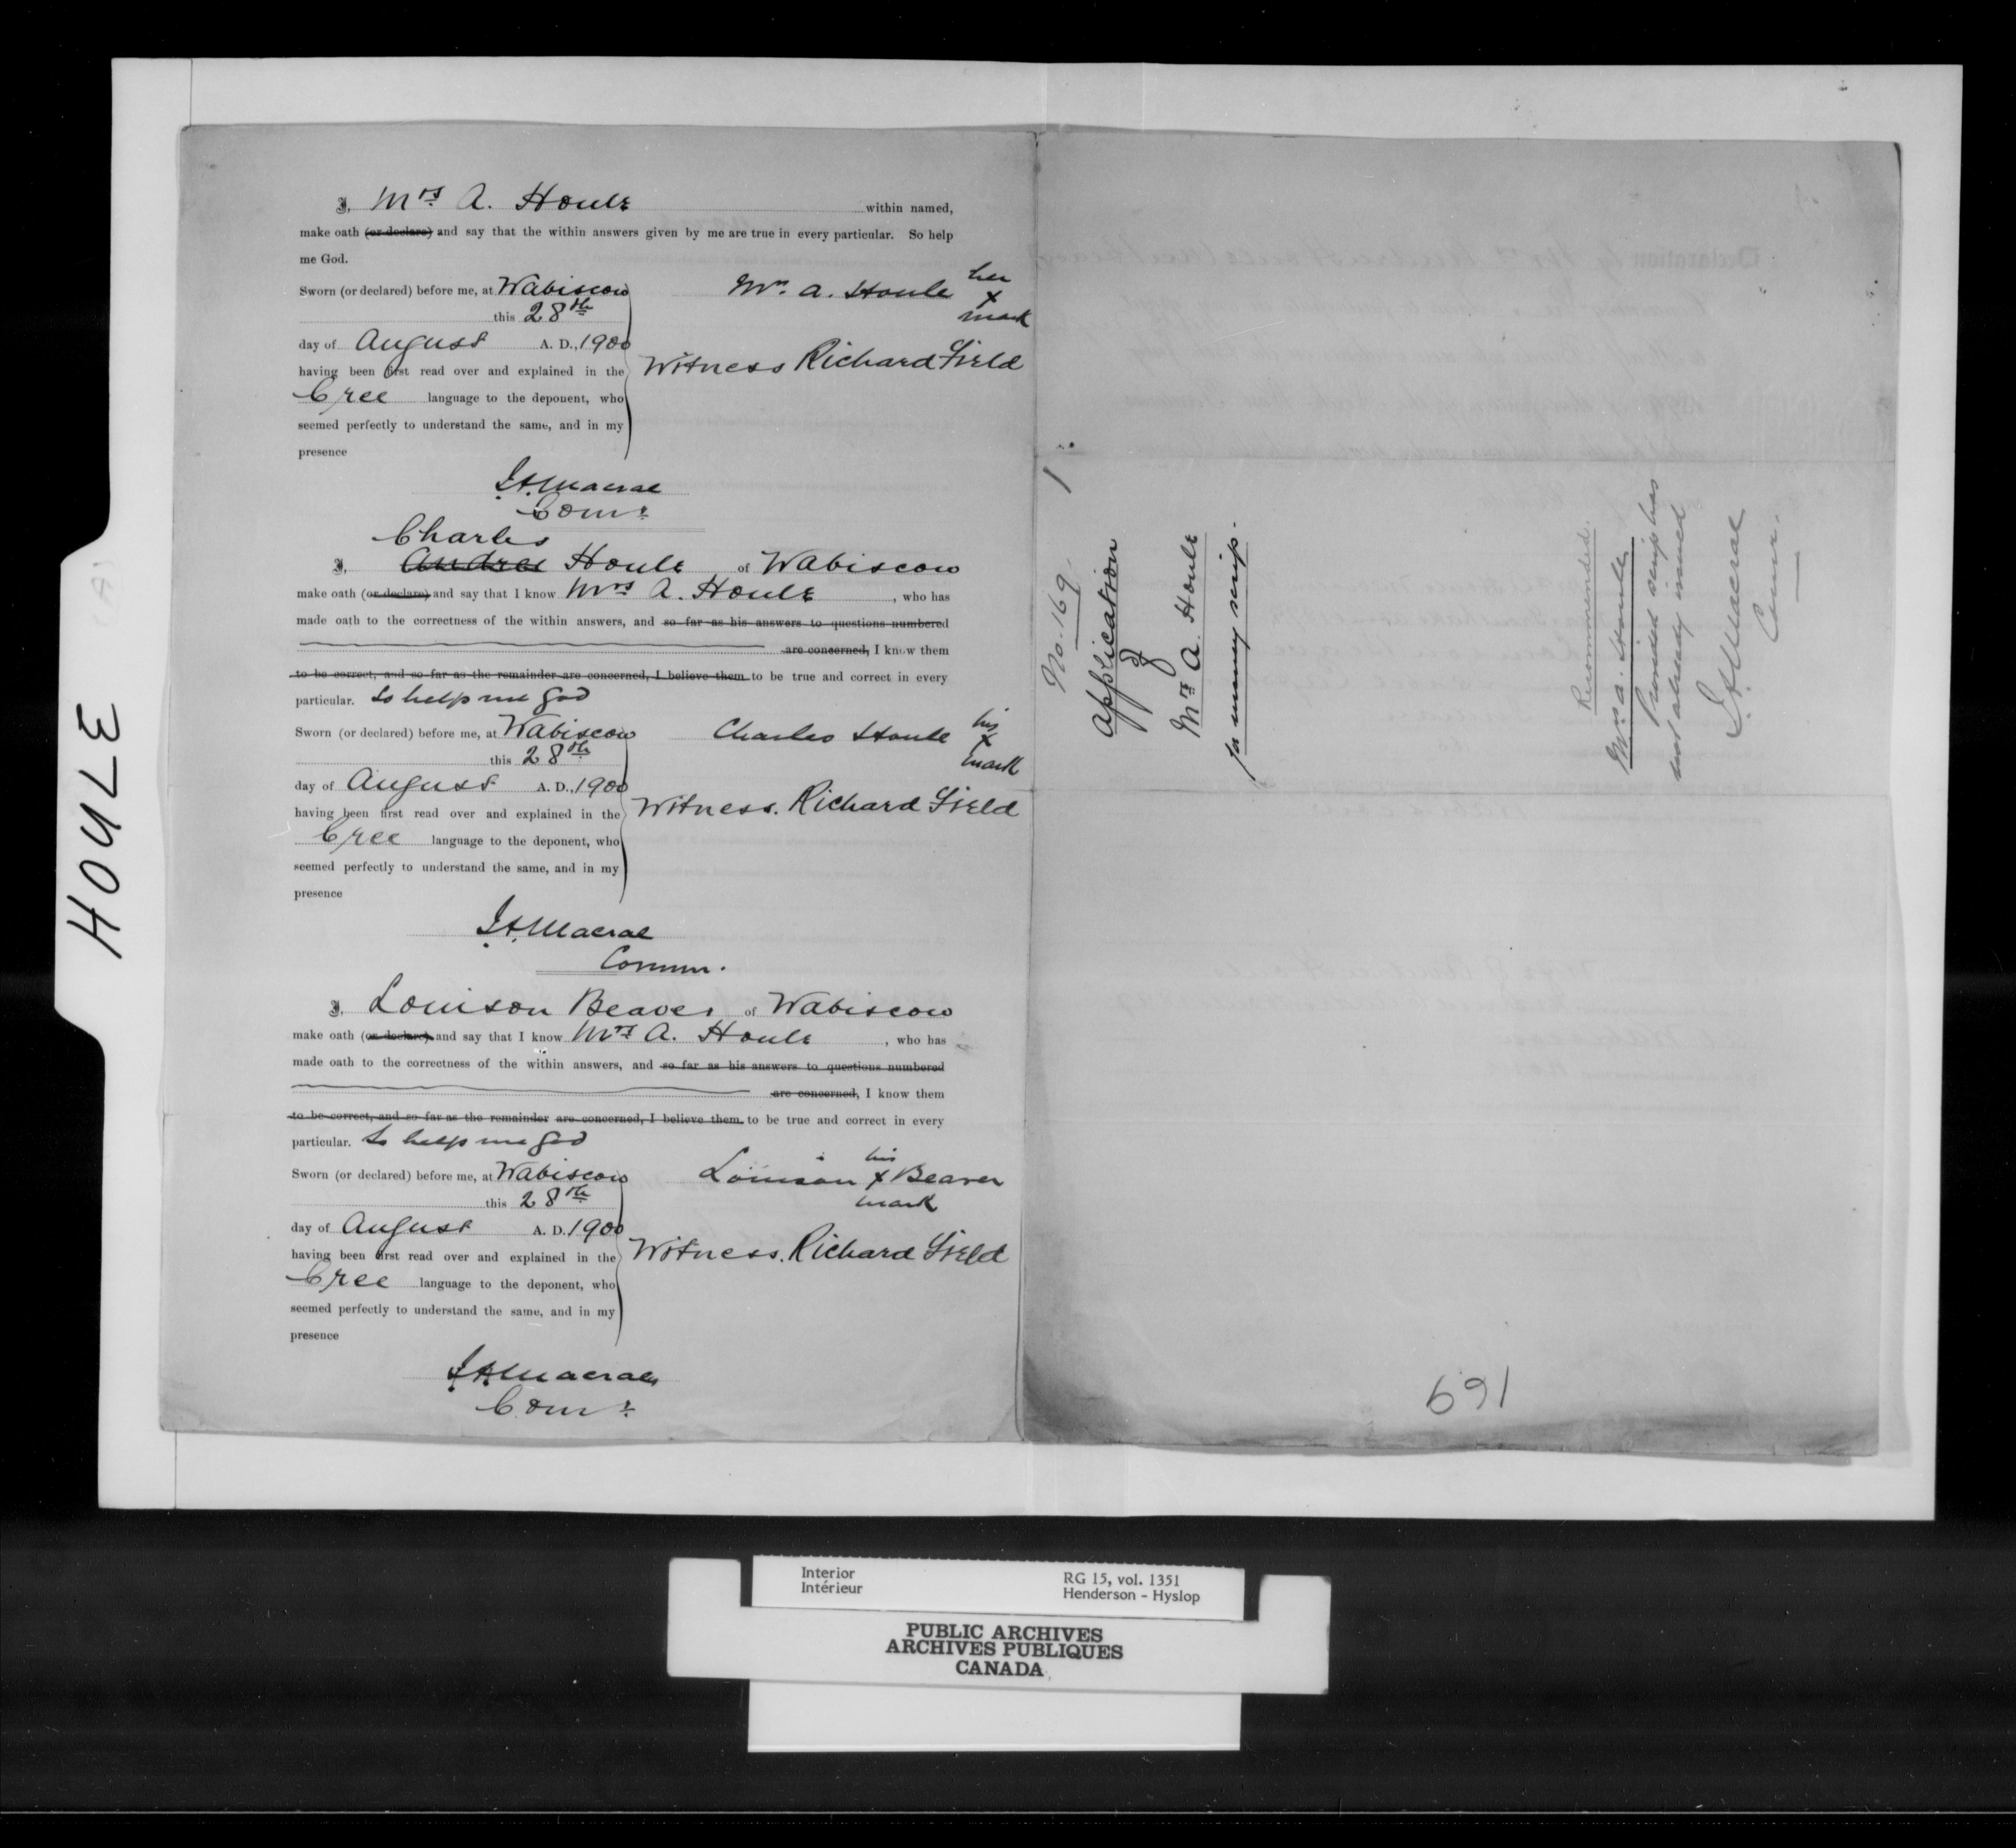 HOULE
I, Mrs A. Houle within named,
make oath (or declare) and say that the within answers given by me are true in every particular. So help
me God.
Sworn (or declared) before me, at Wabiscow
this 28th
day of August A. D., 1900
having been first read over and explained in the
Cree language to the deponent, who
seemed perfectly to understand the same, and in my
presence
Mrs. A. Houle her
x
mark
Witness Richard Field
J.A. Macrae
Comr
Charles
I, Andrew Houle of Wabiscow
make oath (or declare) and say that I know Mrs A. Houle, who has
made oath to the correctness of the within answers, and so far as his answers to questions numbered
are concerned, I know them
to be correct, and so far as the remainder are concerned, I believe them to be true and correct in every
particular. So help me God
Sworn (or declared) before me, at Wabiscow
this 28th
day of August A. D., 1900
having been first read over and explained in the
Cree language to the deponent, who
seemed perfectly to understand the same, and in my
presence
Charles Houle his
x
mark
Witness. Richard Field
J.A. Macrae
Comm.
I, Louison Beaver of Wabiscow
make oath (or declare) and say that I know Mrs A. Houle, who has
made oath to the correctness of the within answers, and so far as his answers to questions numbered
are concerned, I know them
to be correct, and so far as the remainder are concerned, I believe them to be true and correct in every
particular. So help me God
Sworn (or declared) before me, at Wabiscow
this 28th
day of August A. D. 1900
having been first read over and explained in the
Cree language to the deponent, who
seemed perfectly to understand the same, and in my
presence
his
Louison x Beaver
mark
Witness. Richard Field
J.A. Macrae
Comr
No. 169. 1
Application
of
Mrs A. Houle
for money scrip.
Recommended.
Mrs A. Houle
Provided scrip has
not already issued
J.A. Macrae
Comr.
169
Interior
Intérieur
RG 15, vol. 1351
Henderson - Hyslop
PUBLIC ARCHIVES
ARCHIVES PUBLIQUES
CANADA